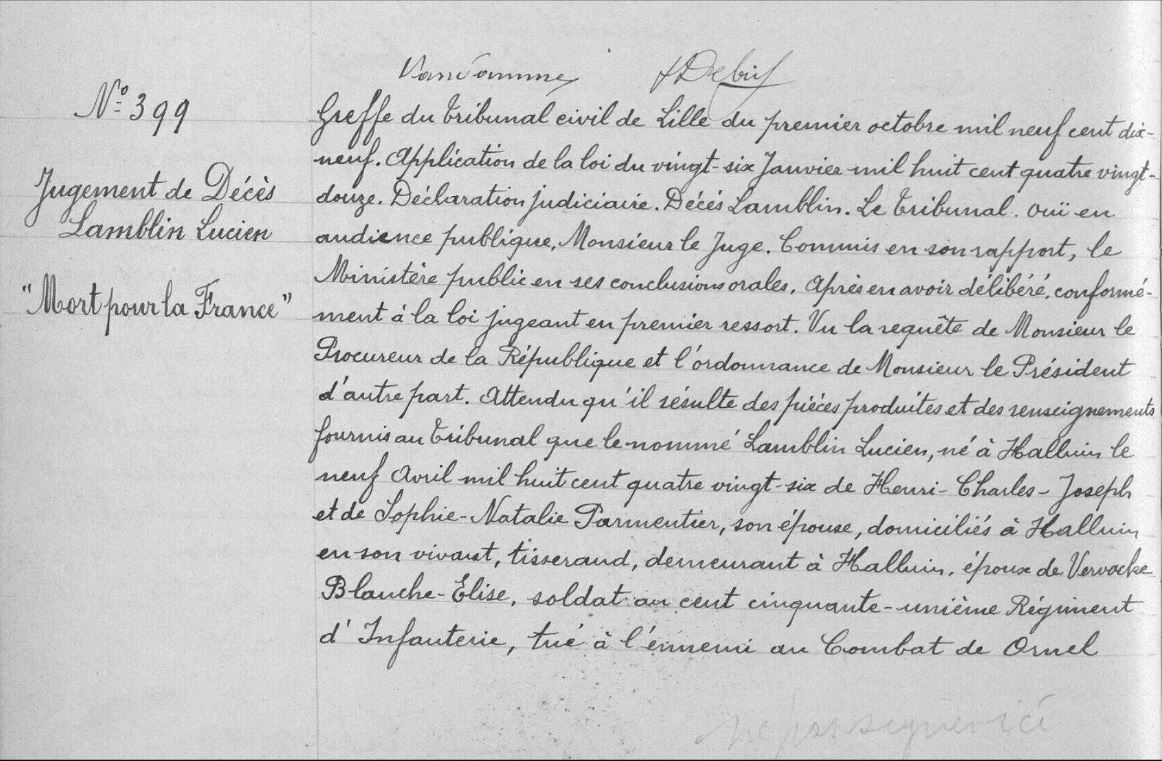 Vandamme
N° 399
Jugement de Décès
Lamblin Lucien
"Mort pour la France"
Greffe du Tribunal civil de Lille du premier octobre mil neuf cent dix-
neuf. Application de la loi du vingt-six Janvier mil huit cent quatre vingt-
douze. Déclaration judiciaire. Décès Lamblin. Le Tribunal. ouï en
audience publique, Monsieur le Juge. Commis en son rapport, le
Ministère public en ses conclusions orales. Après en avoir délibéré, conformé-
ment à la loi jugeant en premier ressort. Vu la requête de Monsieur le
Procureur de la République et l'ordonnance de Monsieur le Président
d'autre part. Attendu qu'il résulte des pièces produites et des renseignements
fournis au Tribunal que le nommé Lamblin Lucien, né à Halluin le
neuf Avril mil huit cent quatre vingt-six de Henri-Charles-Joseph
et de Sophie-Natalie Parmentier, son épouse, domiciliés à Halluin
en son vivant, tisserand, demeurant à Halluin, époux de Vervacke
Blanche-Elise, soldat au cent cinquante-unième Régiment
d'Infanterie, tué à l'ennemi au Combat de Ornel
ne pas signer ici